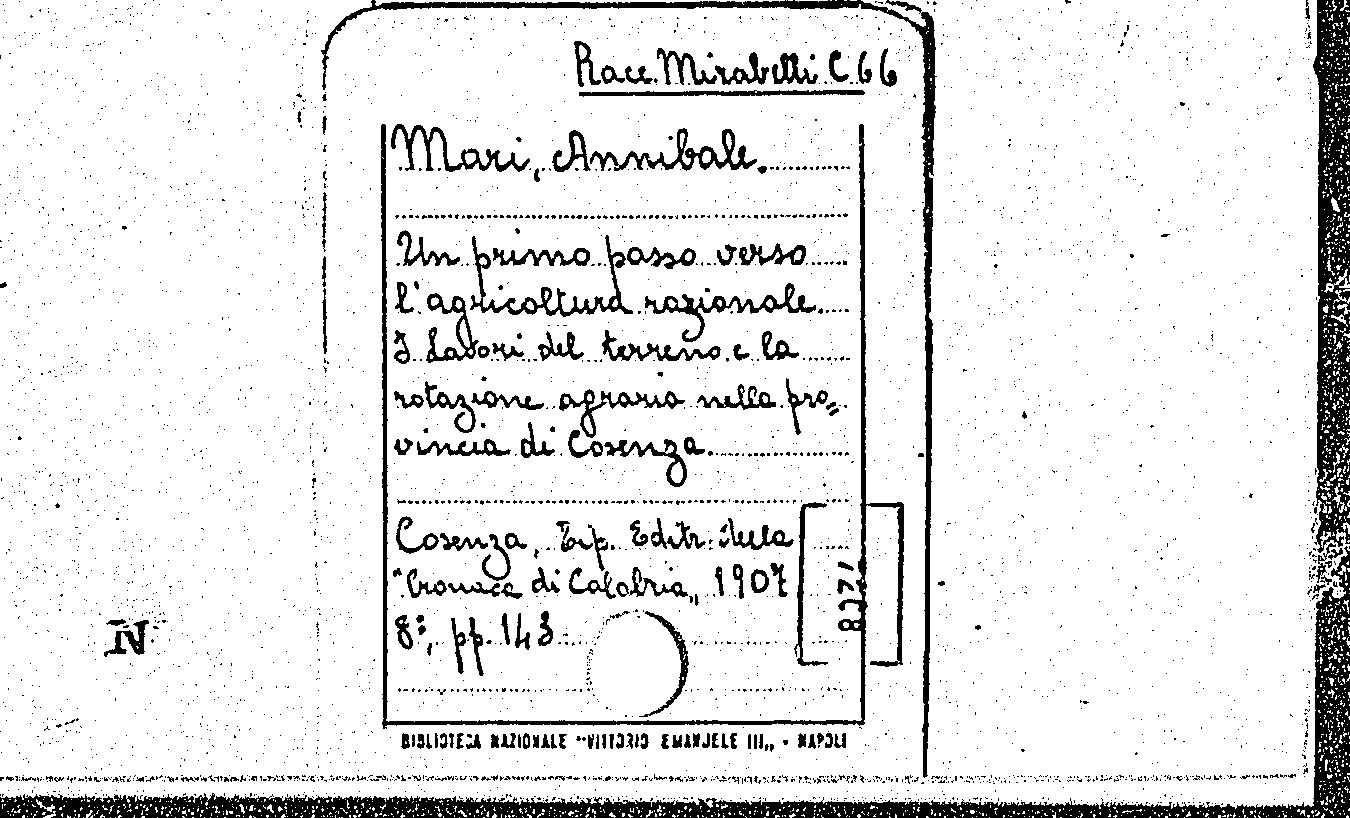 Racc. Mirabelli C 66
Mari, Annibale.
Un primo passo verso
l'agricoltura razionale.
I lavori del terreno e la
rotazione agraria nella pro=
vincia di Cosenza.
Cosenza, Tip. Editr. della
"Cronaca di Calabria„ 1907
8°, pp. 143
BIBLIOTECA NAZIONALE "VITTORIO EMANUELE III„ - NAPOLI
N